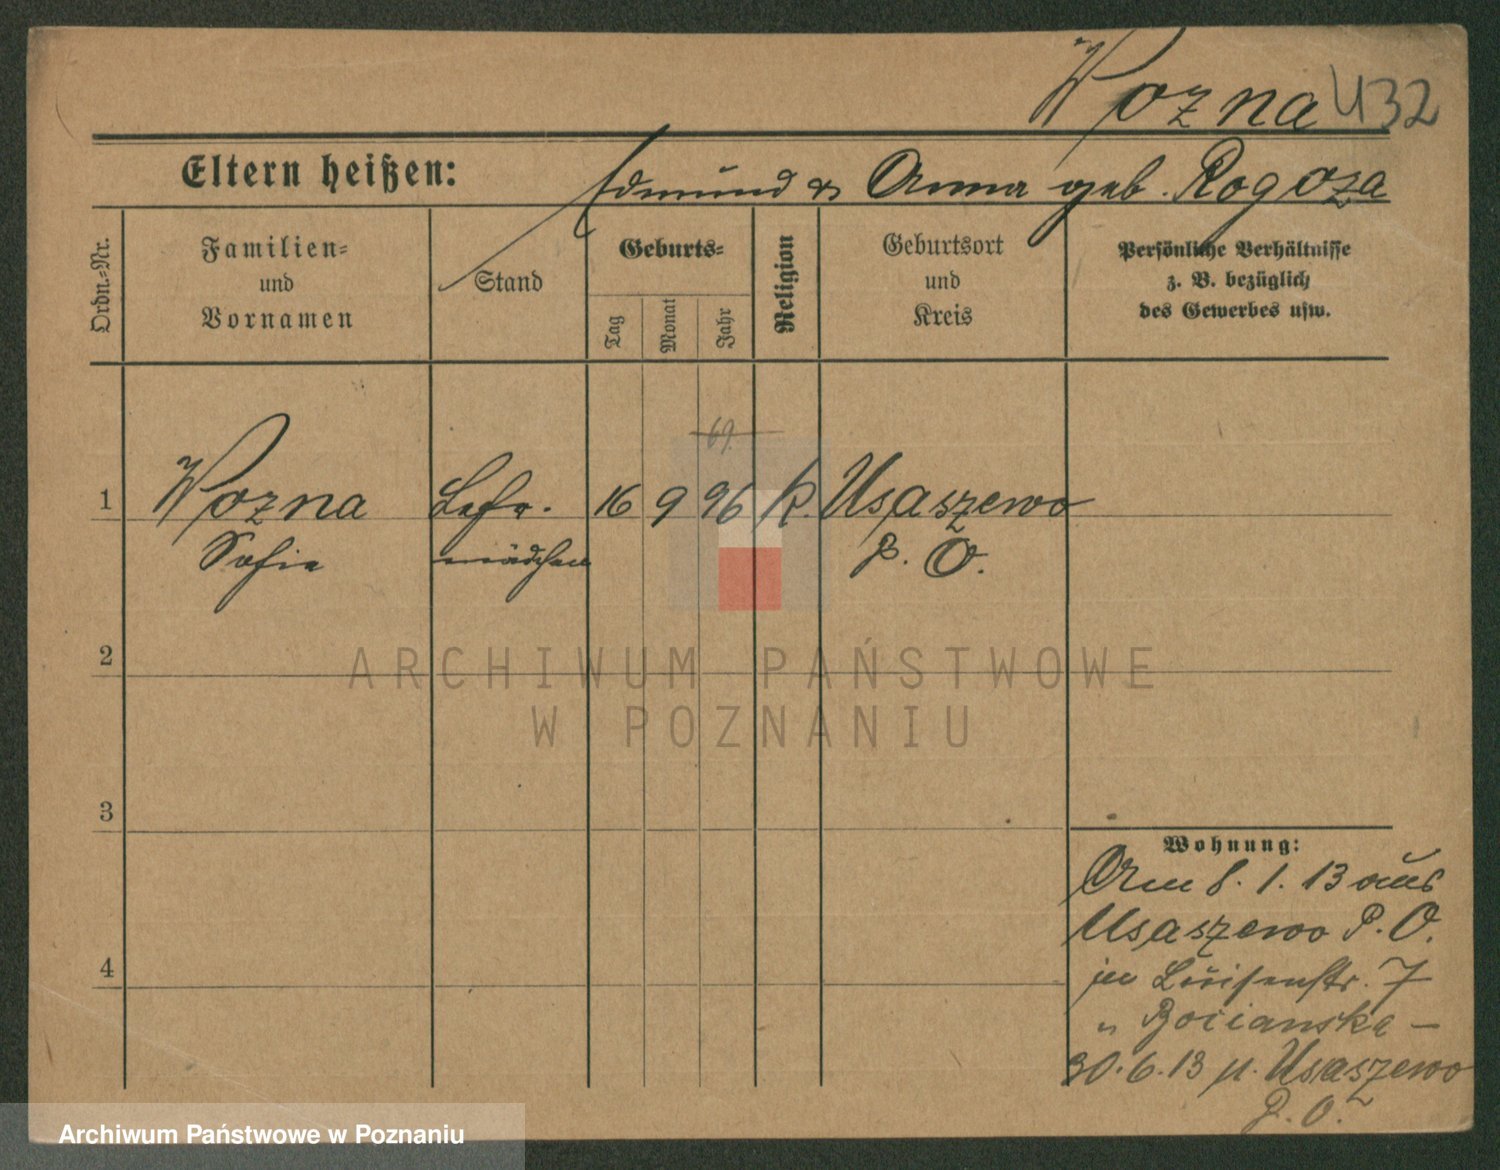 Wozna 432
Eltern heißen: Edmund & Anna geb. Rogoza
Ordn.-Nr.
Familien-
und
Vornamen
Stand
Geburts-
Tag
Monat
Jahr
Religion
Geburtsort
und
Kreis
Persönliche Verhältnisse
z. B. bezüglich
des Gewerbes usw.
69.
1 Wozna Lehr- 16 9 96 k. Usaszewo
Sofie mädchen P. O.
2
ARCHIWUM PAŃSTWOWE
W POZNANIU
3
Wohnung:
Am 8. 1. 13 aus
Usaszewo P. O.
in Luisenstr. 7
" Bocianska –
30. 6. 13 n. Usaszewo
P. O.
4
Archiwum Państwowe w Poznaniu